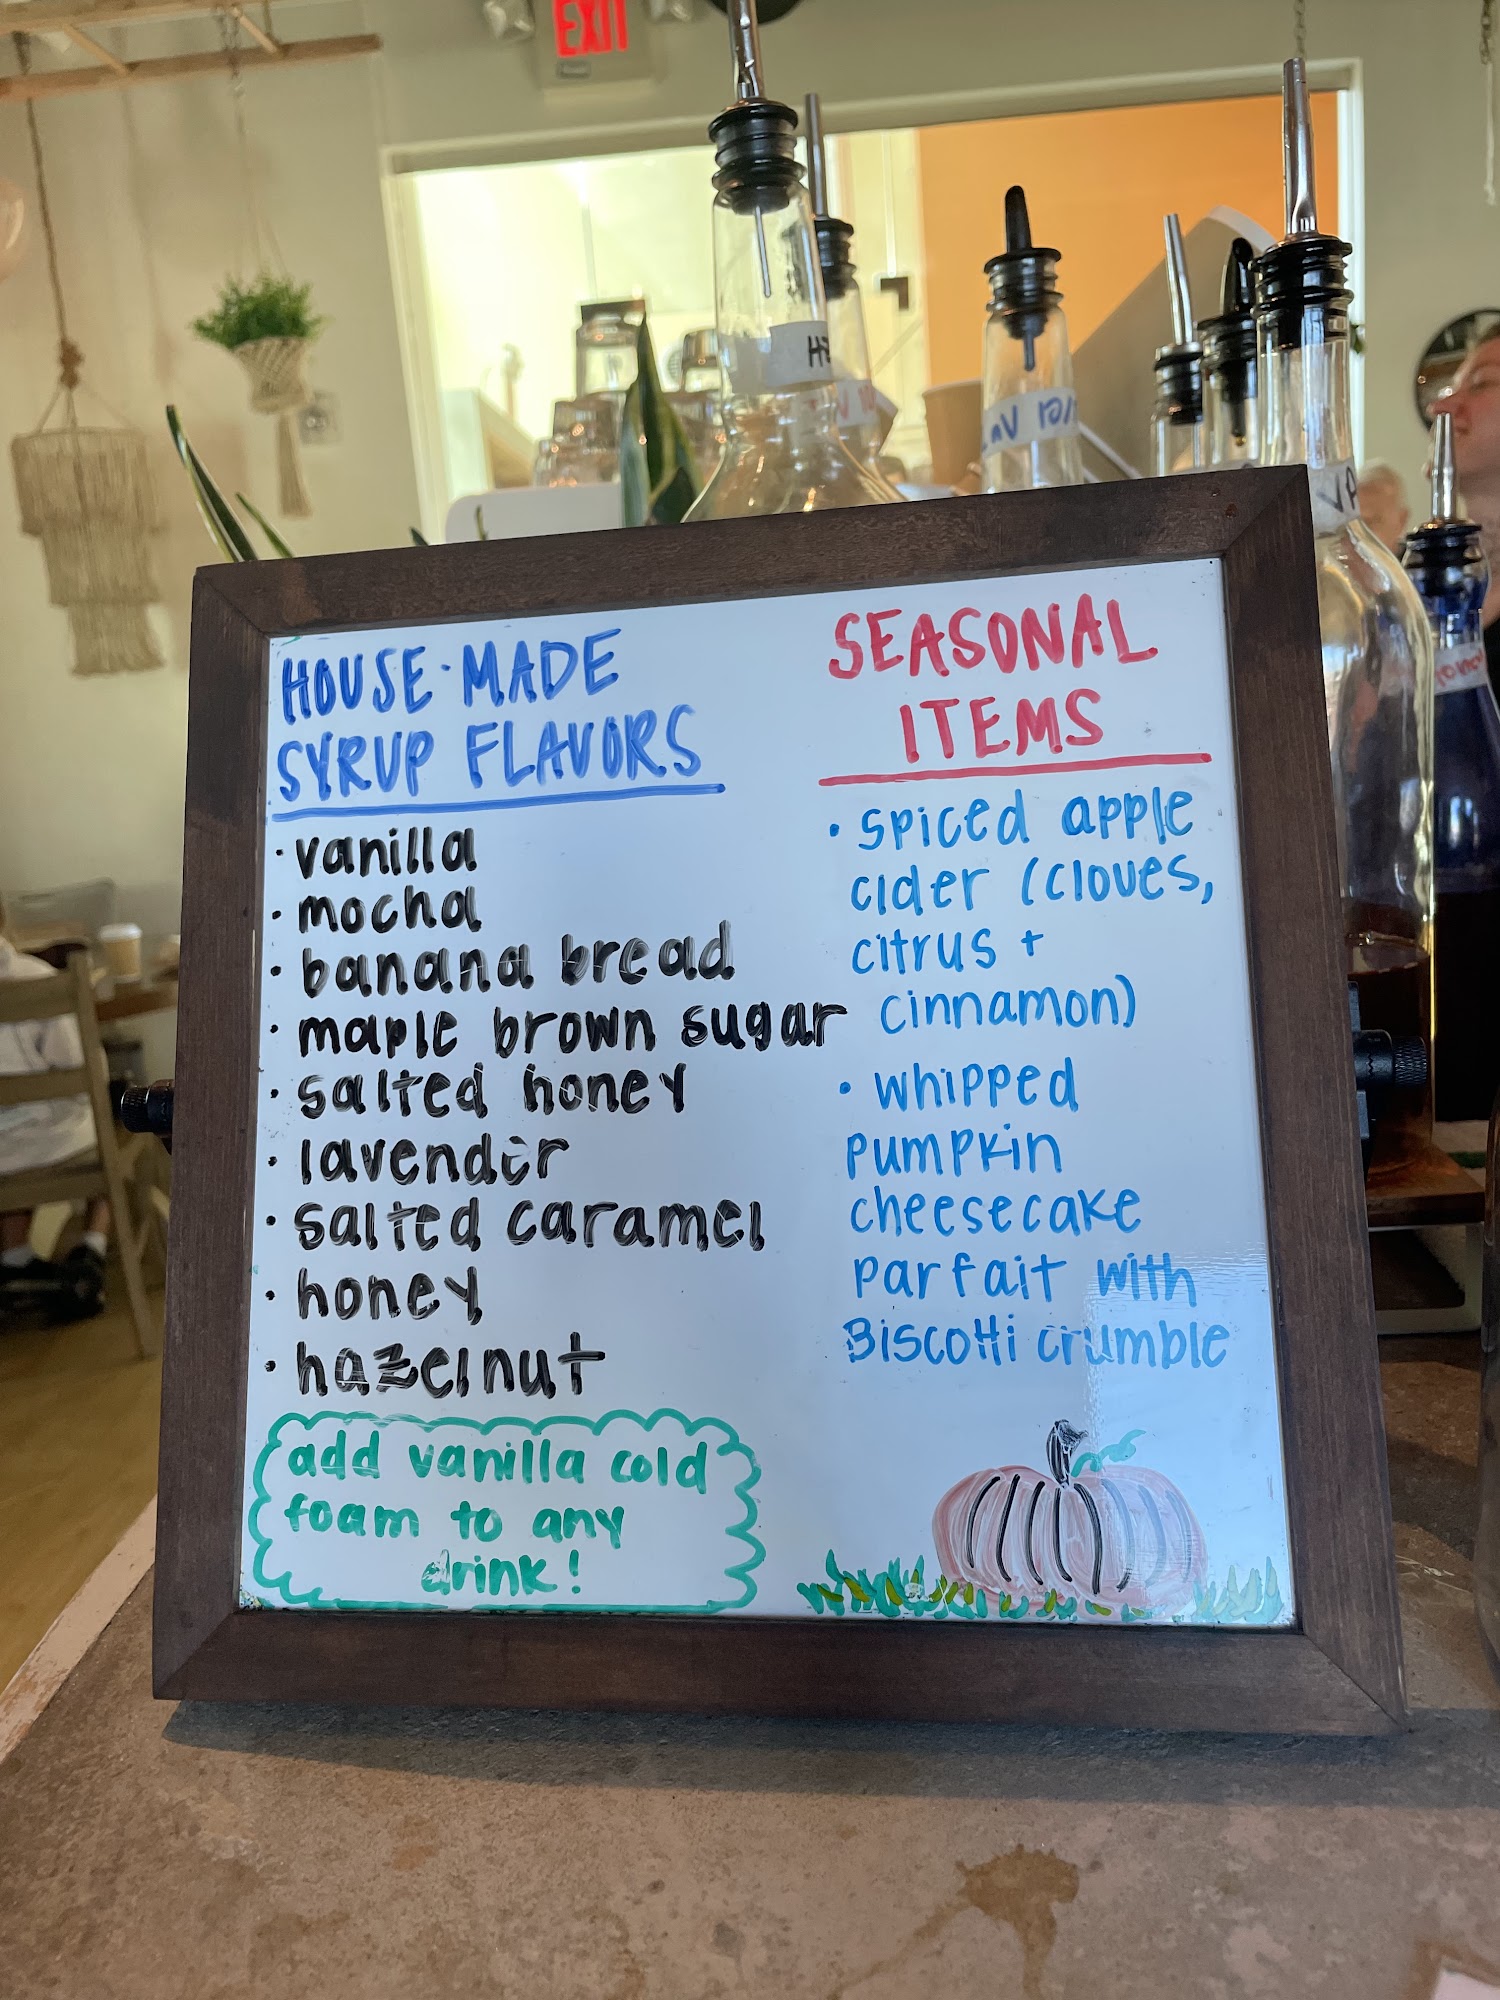 EXIT
HOUSE·MADE
SYRUP FLAVORS
· vanilla
· mocha
· banana bread
· maple brown sugar
· salted honey
· lavender
· salted caramel
· honey
· hazelnut
add vanilla cold
foam to any
drink!
SEASONAL
ITEMS
· spiced apple
cider (cloves,
citrus +
cinnamon)
· whipped
pumpkin
cheesecake
parfait with
Biscotti crumble